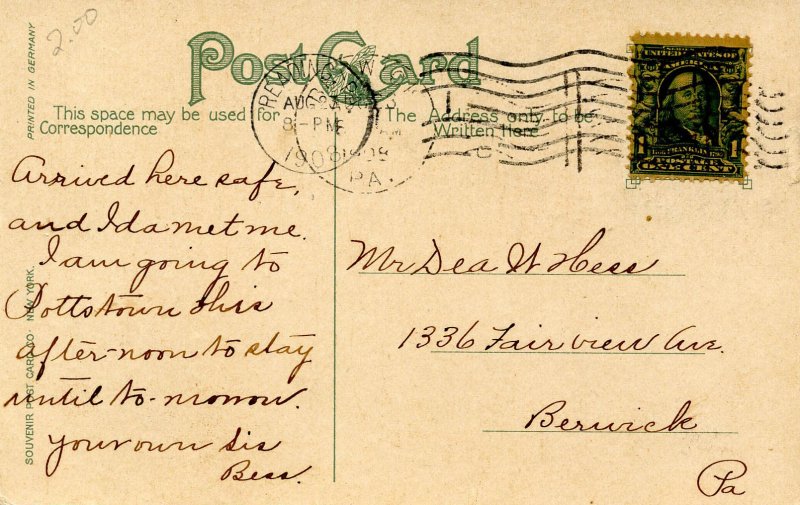 2.00
PRINTED IN GERMANY
Post Card
This space may be used for
Correspondence
The Address only to be
Written Here
READING
AUG 2
8-PM
1908
PA.
UNITED STATES OF
AMERICA
FRANKLIN
1 1
ONE CENT
Arrived here safe,
and Ida met me.
I am going to
Pottstown this
after-noon to stay
until to-morrow.
your own sis
Bess.
Mr Dea W Hess
1336 Fairview Ave.
Berwick
Pa
SOUVENIR POST CARD CO. NEW YORK.